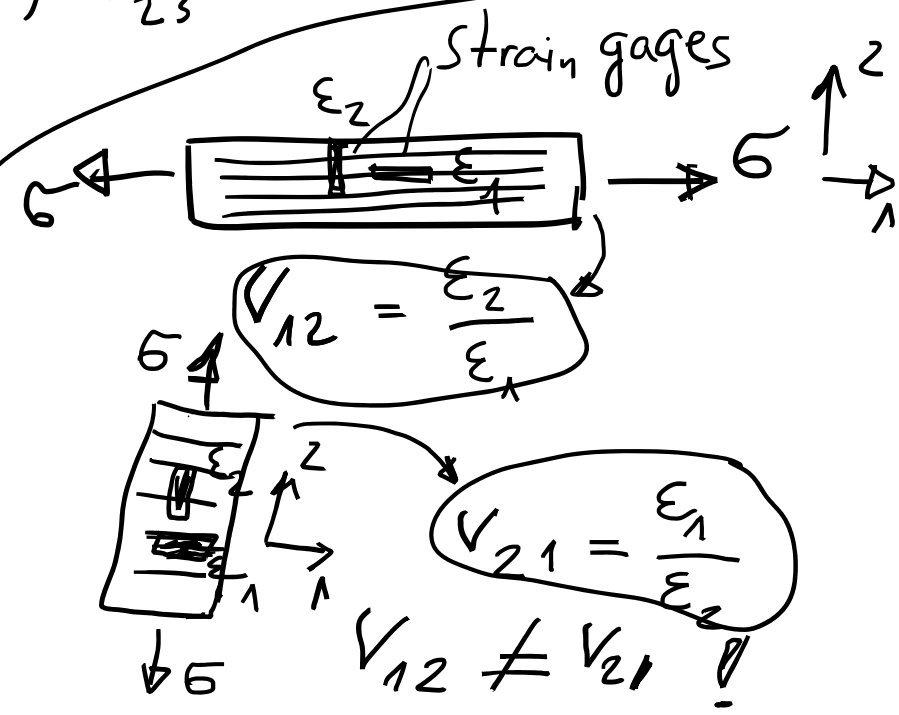 23
Strain gages
ε2
2
σ ε1 σ
1
ν12 = ε2 / ε1
σ
ε2
2
ε1
1
ν21 = ε1 / ε2
σ
ν12 ≠ ν21 !